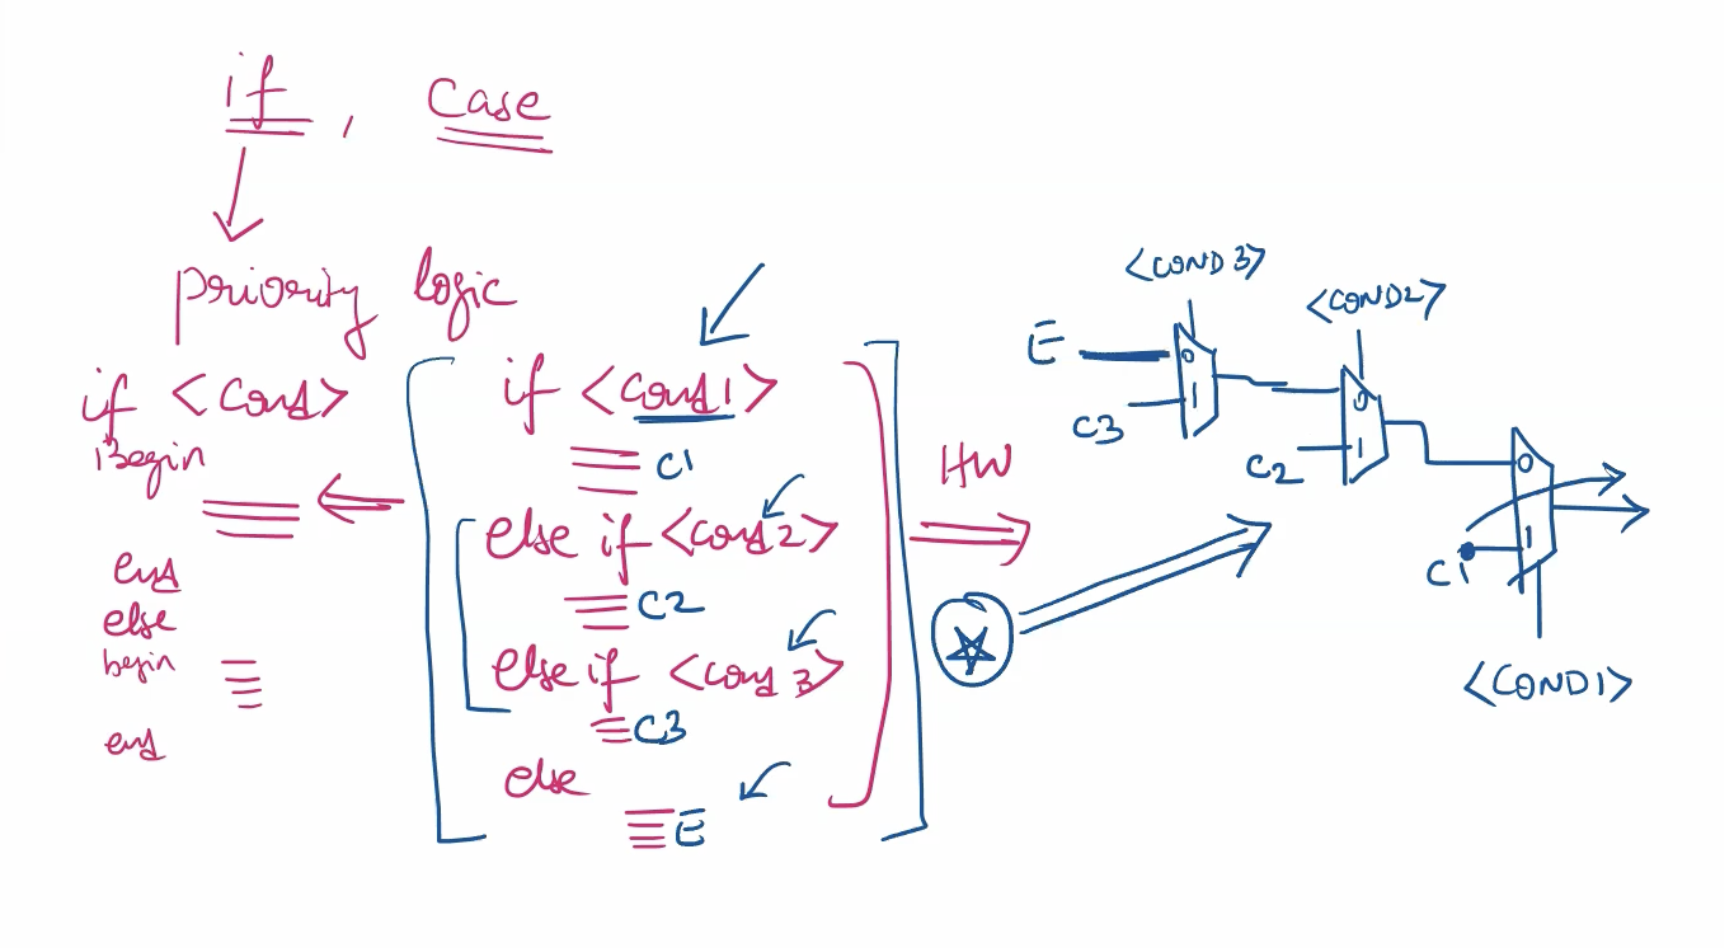 if, Case
priority logic
if <Cond>
Begin
end
else
begin
end
if <Cond1>
C1
else if <cond2>
C2
else if <cond 3>
C3
else
E
HW
<COND 3>
E
0
1
C3
<COND2>
0
1
C2
0
1
C1
<COND1>